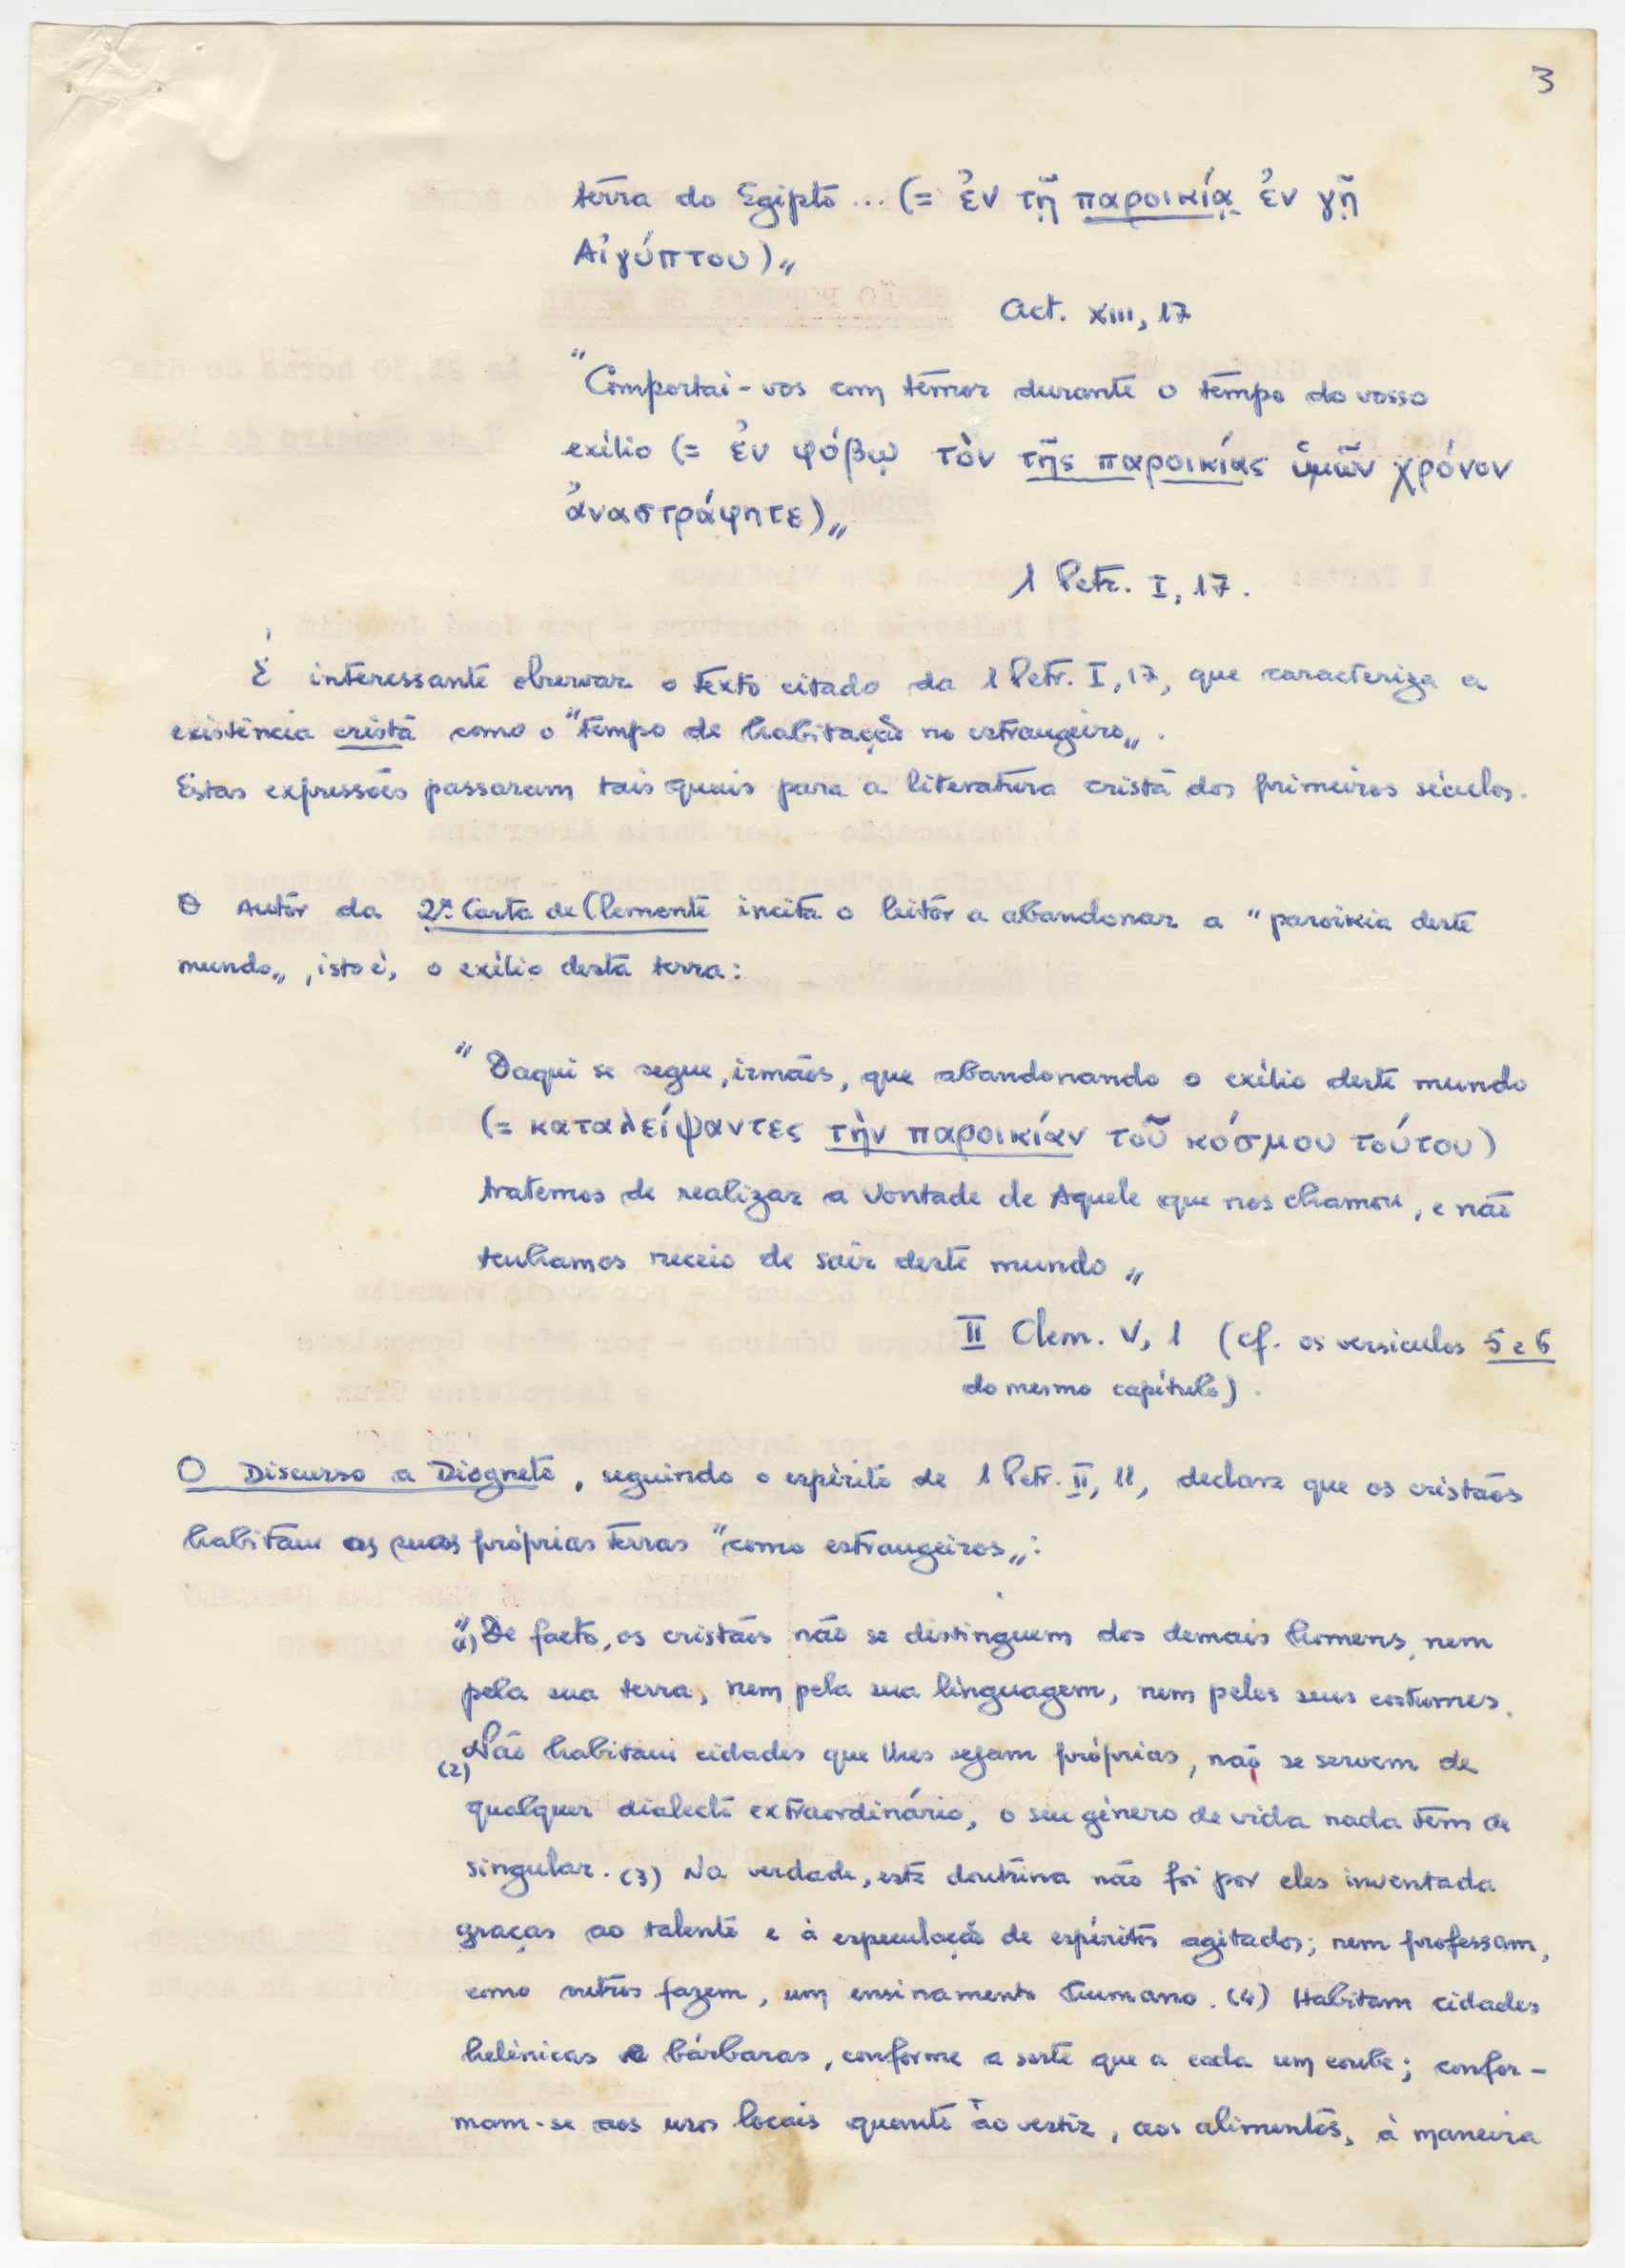 3
terra do Egipto ... (= ἐν τῇ παροικίᾳ ἐν γῇ
Αἰγύπτου)„
Act. XIII, 17
"Comportai-vos com temor durante o tempo do vosso
exílio (= ἐν φόβῳ τὸν τῆς παροικίας ὑμῶν χρόνον
ἀναστράφητε)„
1 Petr. I, 17.
É interessante observar o texto citado da 1 Petr. I, 17, que caracteriza a
existência cristã como o "tempo de habitação no estrangeiro„.
Estas expressões passaram tais quais para a literatura cristã dos primeiros séculos.
O Autor da 2ª Carta de Clemente incita o leitor a abandonar a "paroikia deste
mundo„, isto é, o exílio desta terra:
"Daqui se segue, irmãos, que abandonando o exílio deste mundo
(= καταλείψαντες τὴν παροικίαν τοῦ κόσμου τούτου)
tratemos de realizar a vontade de Aquele que nos chamou, e não
tenhamos receio de sair deste mundo„
II Clem. V, 1 (cf. os versículos 5 e 6
do mesmo capítulo).
O Discurso a Diogneto, seguindo o espírito de 1 Petr. II, 11, declara que os cristãos
habitam as suas próprias terras "como estrangeiros„:
"(1) De facto, os cristãos não se distinguem dos demais homens, nem
pela sua terra, nem pela sua linguagem, nem pelos seus costumes.
(2) Não habitam cidades que lhes sejam próprias, não se servem de
qualquer dialecto extraordinário, o seu género de vida nada tem de
singular. (3) Na verdade, esta doutrina não foi por eles inventada
graças ao talento e à especulação de espíritos agitados; nem professam,
como outros fazem, um ensinamento humano. (4) Habitam cidades
helénicas e bárbaras, conforme a sorte que a cada um coube; confor-
mam-se aos usos locais quanto ao vestir, aos alimentos, à maneira